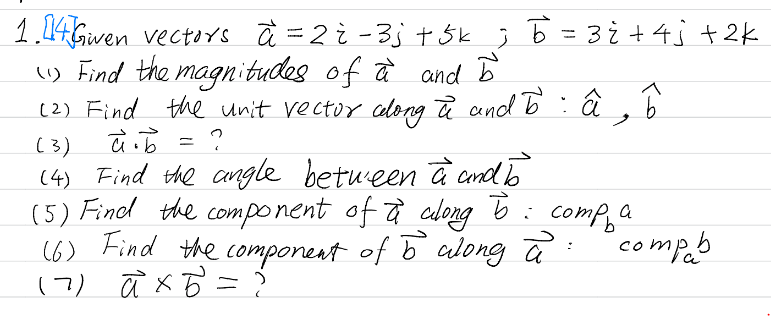 1. [14] Given vectors a⃗ = 2i - 3j + 5k ; b⃗ = 3i + 4j + 2k
(1) Find the magnitudes of a⃗ and b⃗
(2) Find the unit vector along a⃗ and b⃗ : â , b̂
(3) a⃗ · b⃗ = ?
(4) Find the angle between a⃗ and b⃗
(5) Find the component of a⃗ along b⃗ : comp_b a
(6) Find the component of b⃗ along a⃗ : comp_a b
(7) a⃗ × b⃗ = ?